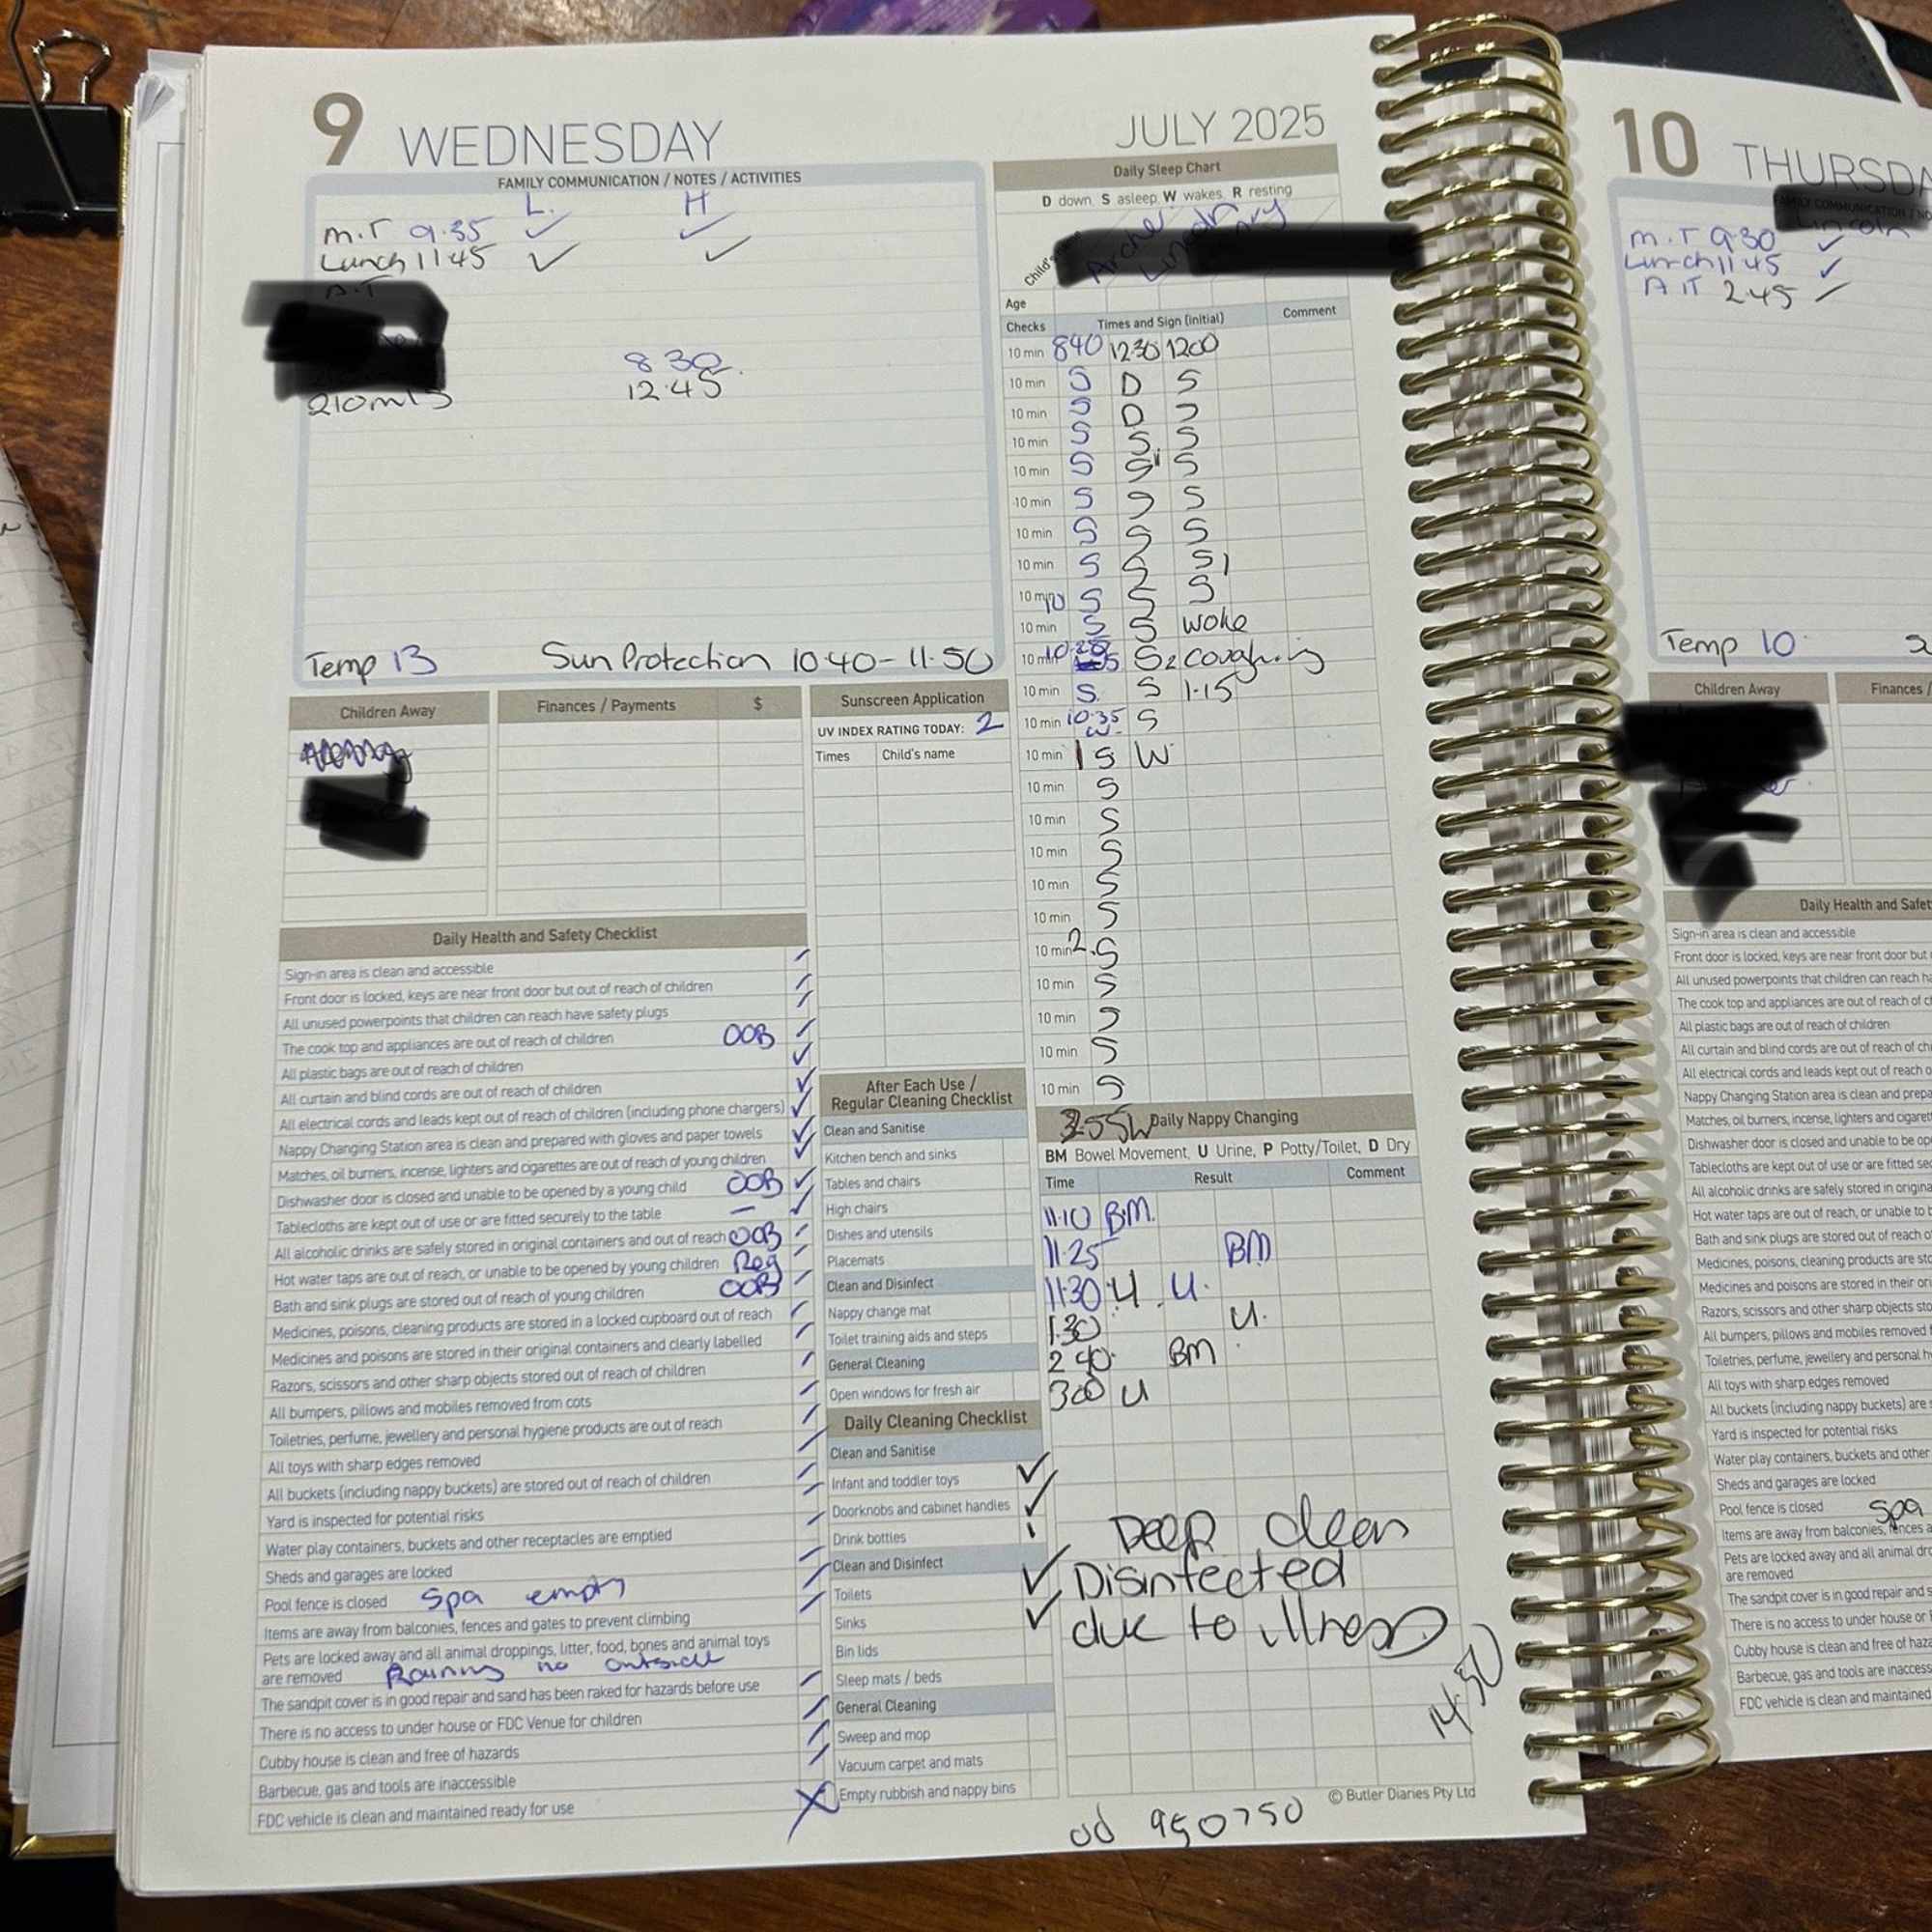 9 WEDNESDAY
JULY 2025
FAMILY COMMUNICATION / NOTES / ACTIVITIES
L. H
M.T 9.35 ✓ ✓
Lunch 11 45 ✓ ✓
A.T
8 30
210mls 12.45
Temp 13 Sun Protection 10.40 - 11.50
Children Away
Finances / Payments $
Sunscreen Application
UV INDEX RATING TODAY: 2
Times Child's name
Daily Health and Safety Checklist
Sign-in area is clean and accessible
Front door is locked, keys are near front door but out of reach of children
All unused powerpoints that children can reach have safety plugs
The cook top and appliances are out of reach of children OOB
All plastic bags are out of reach of children
All curtain and blind cords are out of reach of children
All electrical cords and leads kept out of reach of children (including phone chargers)
Nappy Changing Station area is clean and prepared with gloves and paper towels
Matches, oil burners, incense, lighters and cigarettes are out of reach of young children
Dishwasher door is closed and unable to be opened by a young child OOB
Tablecloths are kept out of use or are fitted securely to the table —
All alcoholic drinks are safely stored in original containers and out of reach OOB
Hot water taps are out of reach, or unable to be opened by young children Reg
Bath and sink plugs are stored out of reach of young children OOB
Medicines, poisons, cleaning products are stored in a locked cupboard out of reach
Medicines and poisons are stored in their original containers and clearly labelled
Razors, scissors and other sharp objects stored out of reach of children
All bumpers, pillows and mobiles removed from cots
Toiletries, perfume, jewellery and personal hygiene products are out of reach
All toys with sharp edges removed
All buckets (including nappy buckets) are stored out of reach of children
Yard is inspected for potential risks
Water play containers, buckets and other receptacles are emptied
Sheds and garages are locked
Pool fence is closed Spa empty
Items are away from balconies, fences and gates to prevent climbing
Pets are locked away and all animal droppings, litter, food, bones and animal toys
are removed Raining no outside
The sandpit cover is in good repair and sand has been raked for hazards before use
There is no access to under house or FDC Venue for children
Cubby house is clean and free of hazards
Barbecue, gas and tools are inaccessible
FDC vehicle is clean and maintained ready for use X
After Each Use /
Regular Cleaning Checklist
Clean and Sanitise
Kitchen bench and sinks
Tables and chairs
High chairs
Dishes and utensils
Placemats
Clean and Disinfect
Nappy change mat
Toilet training aids and steps
General Cleaning
Open windows for fresh air
Daily Cleaning Checklist
Clean and Sanitise
Infant and toddler toys ✓
Doorknobs and cabinet handles ✓
Drink bottles
Clean and Disinfect
Toilets ✓
Sinks ✓
Bin lids
Sleep mats / beds
General Cleaning
Sweep and mop
Vacuum carpet and mats
Empty rubbish and nappy bins
Daily Sleep Chart
D down, S asleep, W wakes, R resting
Child's
Age
Checks Times and Sign (initial) Comment
10 min 840 1230 1200
10 min S D S
10 min S D S
10 min S S S
10 min S S S
10 min S S S
10 min S S S
10 min S S S
10 min 10 S S S
10 min S S woke
10 min S coughing
10 min S. S 1.15
10 min 10.35 W. S
10 min 1 S W
10 min S
10 min S
10 min S
10 min S
10 min S
10 min 2. S
10 min S
10 min S
10 min S
10 min S
Daily Nappy Changing
BM Bowel Movement, U Urine, P Potty/Toilet, D Dry
Time Result Comment
11.10 BM.
11.25 BM
11:30 U U.
1.30 U.
2 40 BM
300 U
Deep clean
Disinfected
due to illness
14.50
© Butler Diaries Pty Ltd
od 950750
10 THURSDA
M.T 9.30 ✓
Lunch 11 45 ✓
A T 2.45
Temp 10
Children Away
Finances /
Daily Health and Safet
Sign-in area is clean and accessible
Front door is locked, keys are near front door but
All unused powerpoints that children can reach ha
The cook top and appliances are out of reach of c
All plastic bags are out of reach of children
All curtain and blind cords are out of reach of ch
All electrical cords and leads kept out of reach o
Nappy Changing Station area is clean and prepa
Matches, oil burners, incense, lighters and cigaret
Dishwasher door is closed and unable to be op
Tablecloths are kept out of use or are fitted sec
All alcoholic drinks are safely stored in origina
Hot water taps are out of reach, or unable to b
Bath and sink plugs are stored out of reach o
Medicines, poisons, cleaning products are sto
Medicines and poisons are stored in their ori
Razors, scissors and other sharp objects sto
All bumpers, pillows and mobiles removed f
Toiletries, perfume, jewellery and personal hy
All toys with sharp edges removed
All buckets (including nappy buckets) are s
Yard is inspected for potential risks
Water play containers, buckets and other
Sheds and garages are locked
Pool fence is closed Spa
Items are away from balconies, fences a
Pets are locked away and all animal dro
are removed
The sandpit cover is in good repair and s
There is no access to under house or
Cubby house is clean and free of haza
Barbecue, gas and tools are inaccess
FDC vehicle is clean and maintained